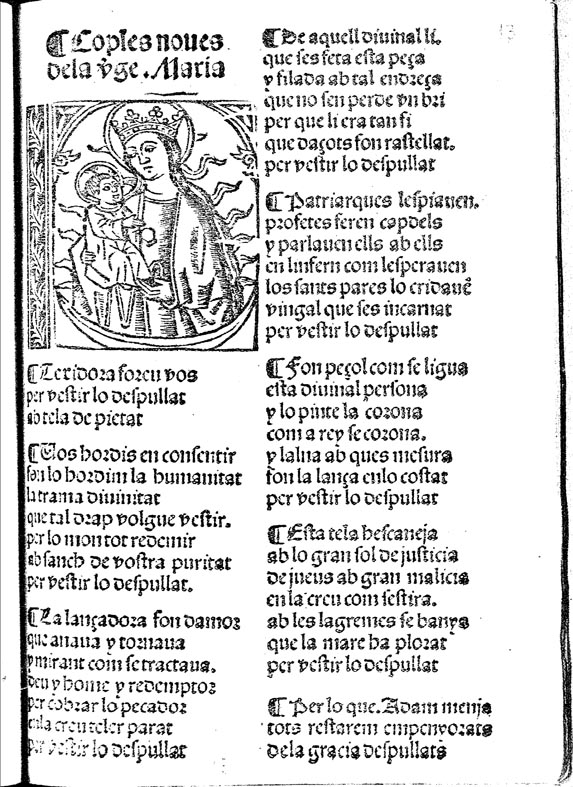 ¶Coples noues
dela v̄ge. Maria
¶Texidora foreu vos
per vestir lo despullat
ab tela de pietat
¶Vos hordis en consentir
fon lo hordim la humanitat
la trama diuinitat
que tal drap volgue vestir.
per lo mon tot redemir
ab sanch de vostra puritat
per vestir lo despullat.
¶La lançadora fon damor
que anaua y tornaua
y mirant com se tractaua.
deu y home y redemptor
per cobrar lo pecador
enla creu teler parat
per vestir lo despullat
¶De aquell diuinal li.
que ses feta esta peça
y filada ab tal endreça
que no sen perde vn bri
per que li era tan fi
que daçots fon rastellat.
per vestir lo despullat
¶Patriarques lespiauen.
profetes feren capdels
y parlauen ells ab ells
en linfern com lesperauen
los sants pares lo cridauē
vingal que ses incarnat
per vestir lo despullat
¶Fon peçol com se ligua
esta diuinal persona
y lo pinte la corona
com a rey se corona.
y lalna ab ques mesura
fon la lança enlo costat
per vestir lo despullat
¶Esta tela bescaneja
ab lo gran sol de justicia
de jueus ab gran malicia
en la creu com sestira.
ab les lagremes se banya
que la mare ha plorat
per vestir lo despullat
¶Per lo que. Adam menja
tots restarem empenyorats
dela gracia despullats